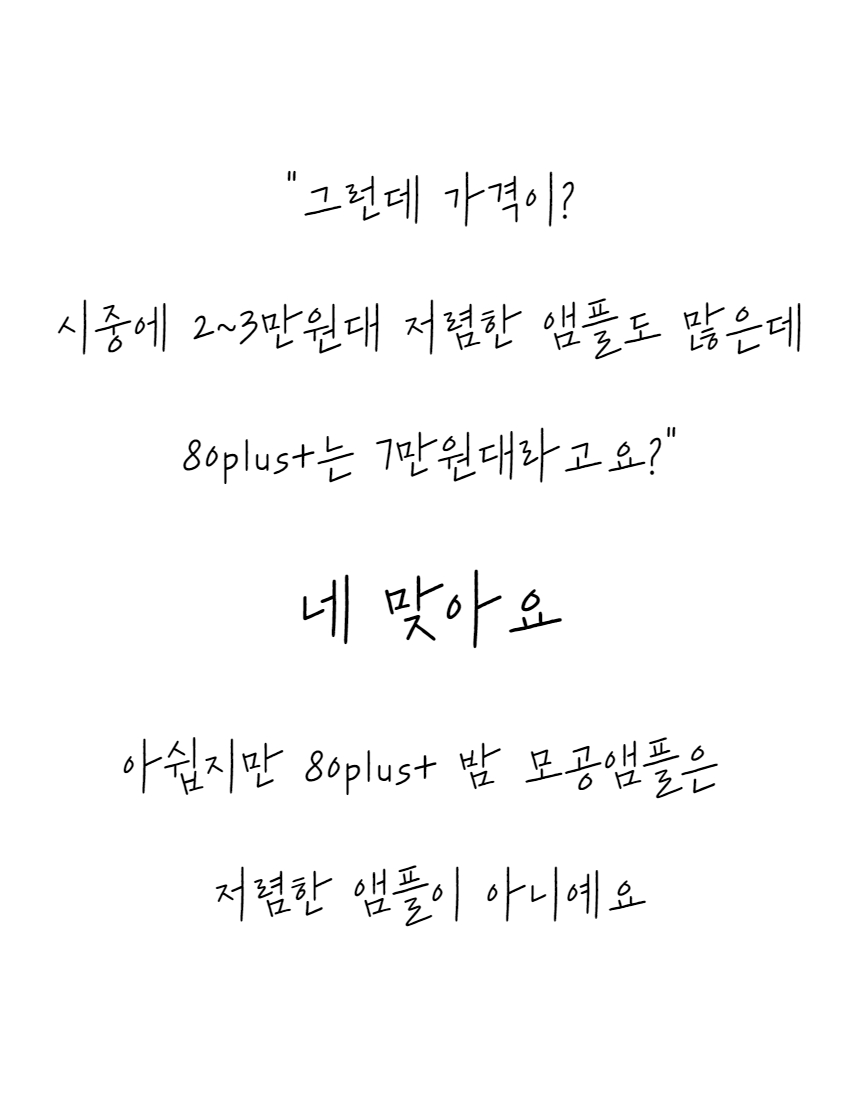 "그런데 가격이?
시중에 2~3만원대 저렴한 앰플도 많은데
80plus+는 7만원대라고요?"
네 맞아요
아쉽지만 80plus+ 밤 모공앰플은
저렴한 앰플이 아니예요